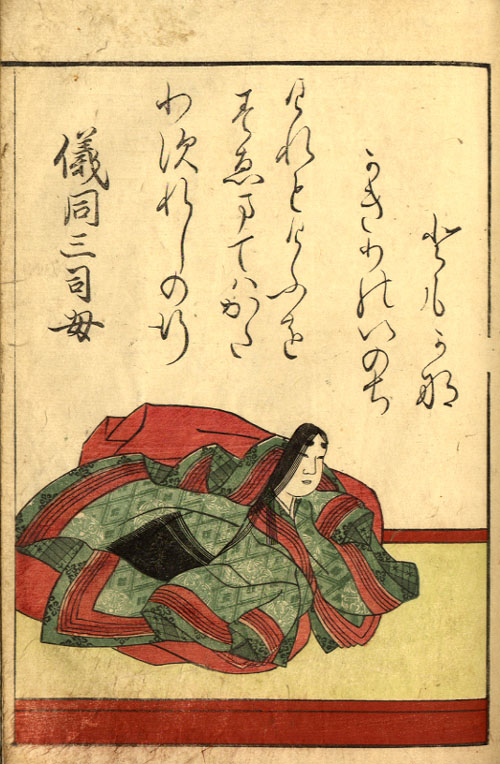 儀同三司母
わすれしの行
すゑまてはかた
けれはけふを
かきりのいのち
ともかな